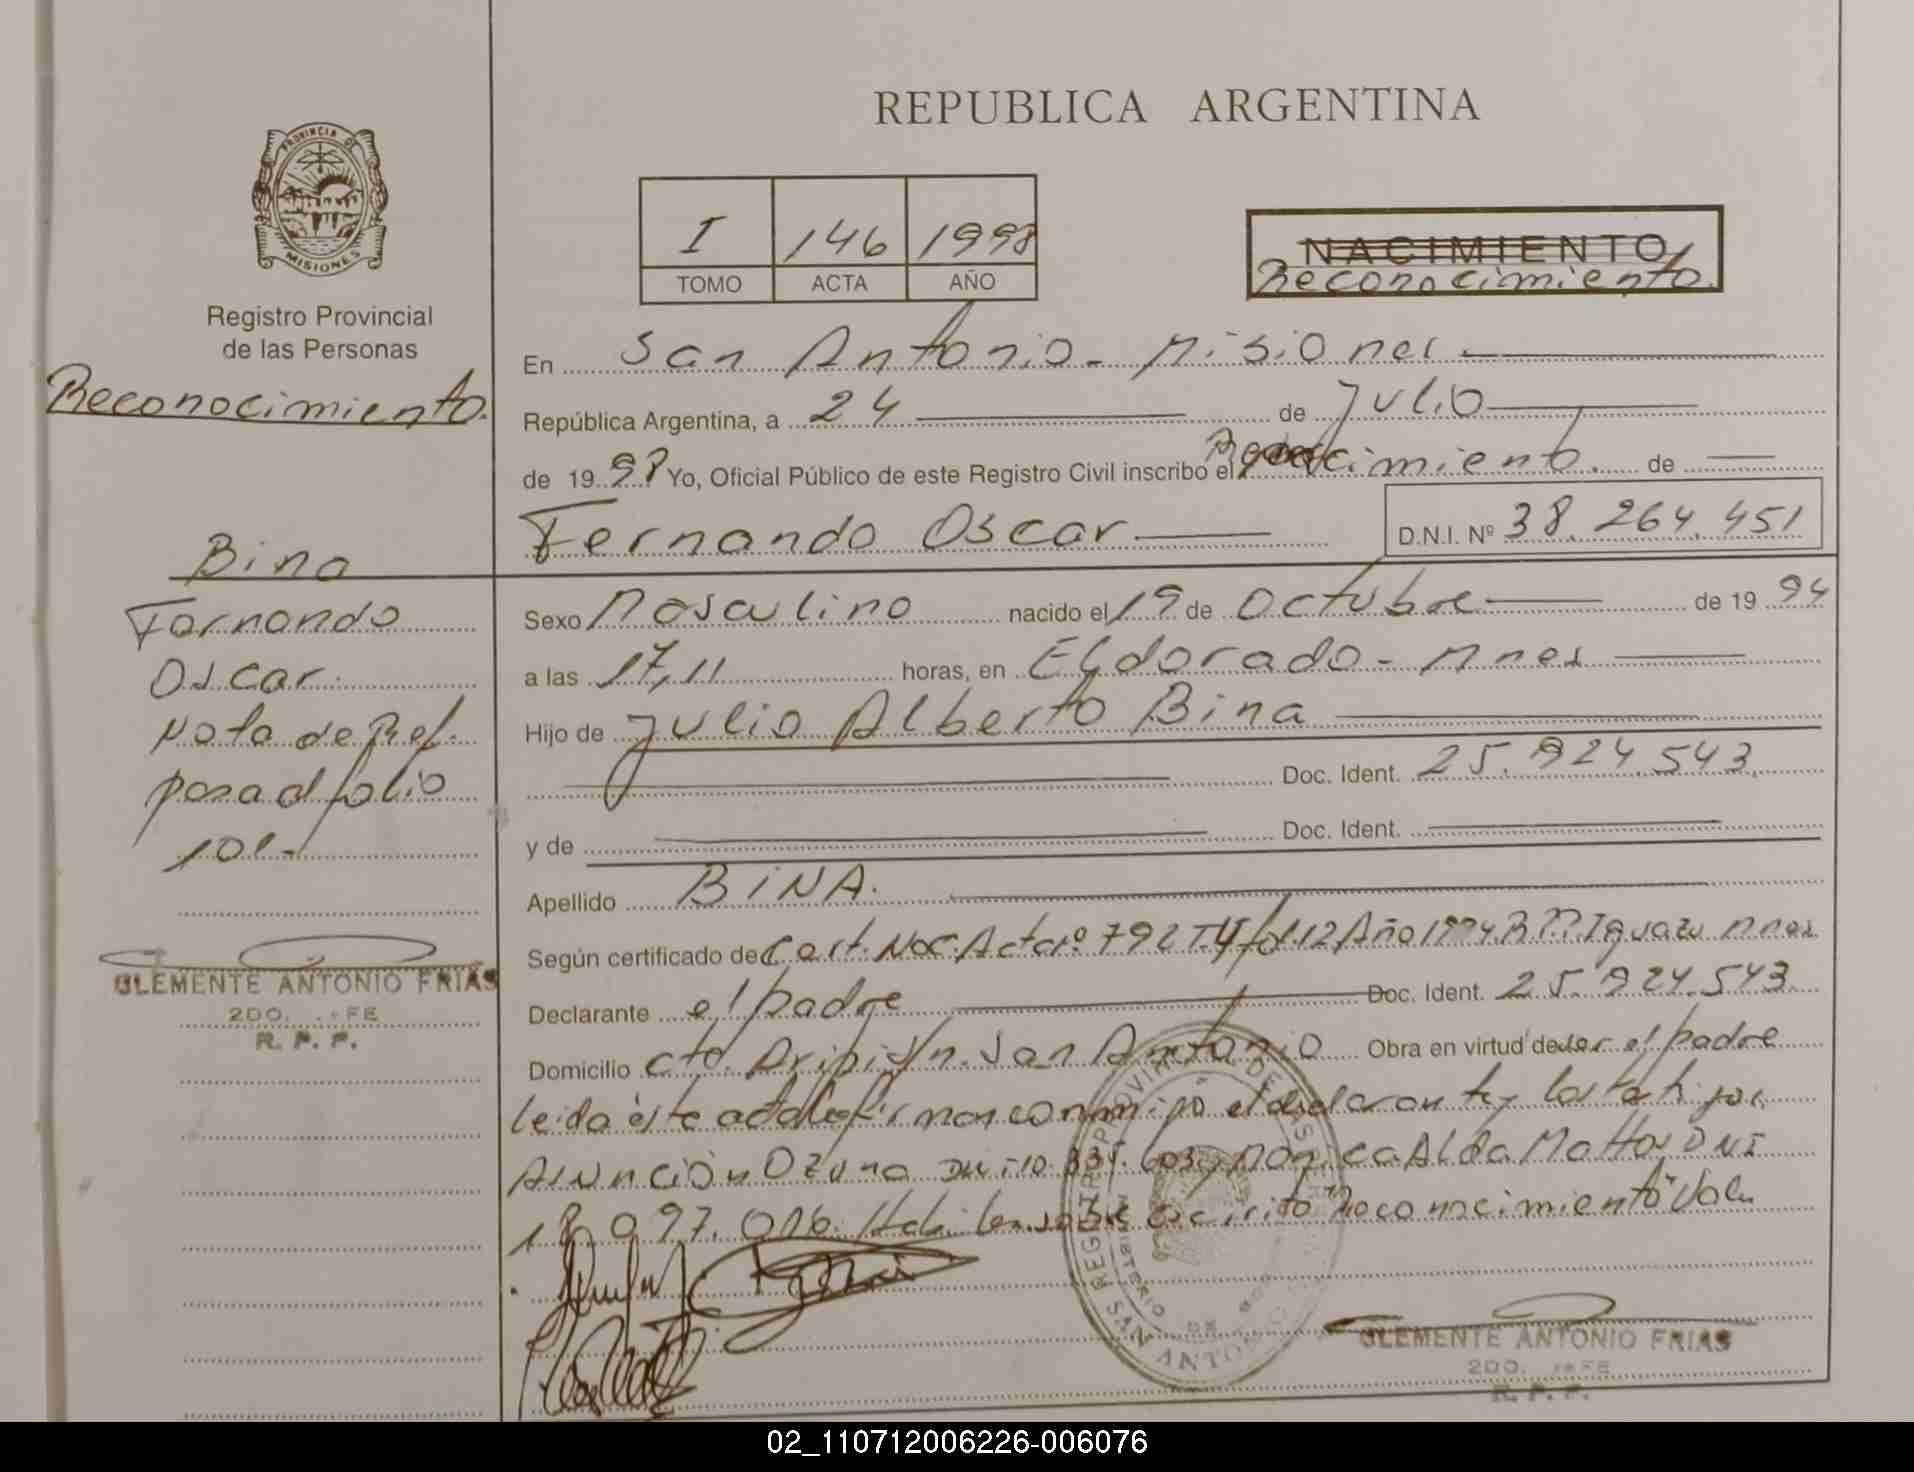 REPUBLICA ARGENTINA
PROVINCIA DE
MISIONES
Registro Provincial
de las Personas
Reconocimiento.
Bina
Fernando
Oscar
Nota de Ref.
pasa al folio
101-
CLEMENTE ANTONIO FRIAS
2DO. JEFE
R. P. P.
I 146 1998
TOMO ACTA AÑO
NACIMIENTO
Reconocimiento.
En San Antonio - Misiones
República Argentina, a 24 de Julio
de 1998 Yo, Oficial Público de este Registro Civil inscribo el Reconocimiento de
Fernando Oscar D.N.I. Nº 38.264.451
Sexo Masculino nacido el 19 de Octubre de 1994
a las 17,11 horas, en Eldorado - Mnes
Hijo de Julio Alberto Bina
Doc. Ident. 25.924.543
y de Doc. Ident.
Apellido BINA.
Según certificado de Cert. Nac. Acta nº 792 T. fol. 12 Año 1994 R.P.P. Iguazu Mnes
Declarante el padre Doc. Ident. 25.924.543
Domicilio San Antonio Obra en virtud de ser el padre
leida este acta la firman conmigo el declarante y los testigos
Asunción Ozuna DNI 10.334.603 y Mónica Alda Mattos DNI
18.097.016. sobre escrito "Reconocimiento" Vale
REGISTRO PROVINCIAL DE LAS PERSONAS
MINISTERIO DE GOBIERNO
SAN ANTONIO
CLEMENTE ANTONIO FRIAS
2DO. JEFE
R. P. P.
02_110712006226-006076